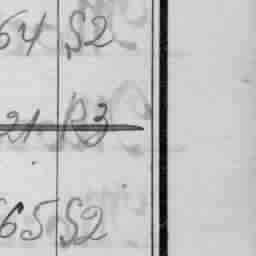 64 S2
21 R3
65 S2